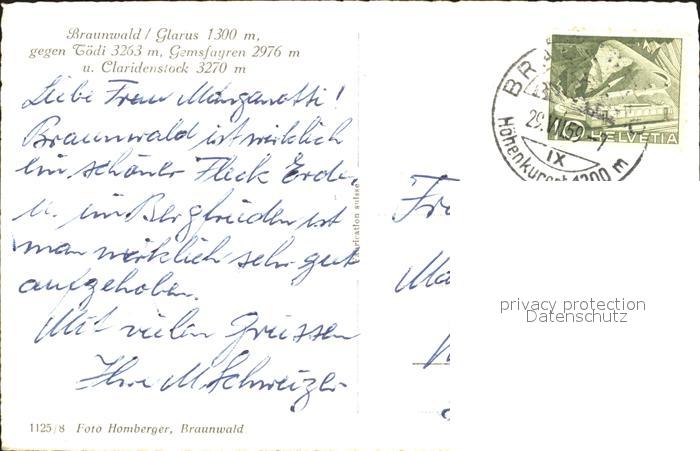 Braunwald / Glarus 1300 m,
gegen Tödi 3263 m, Gemsfayren 2976 m
u. Claridenstock 3270 m
Liebe Frau Manganotti!
Braunwald ist wirklich
ein schöner Fleck Erde,
u. im Bergfrieden ist
man wirklich sehr gut
aufgehoben.
Mit vielen Grüssen
Ihre M. Schweizer
1125/8 Foto Homberger, Braunwald
Fabrication suisse
BR
29.VII.59
IX
Höhenkurort 1300 m
HELVETIA
Fr
Ma
privacy protection
Datenschutz